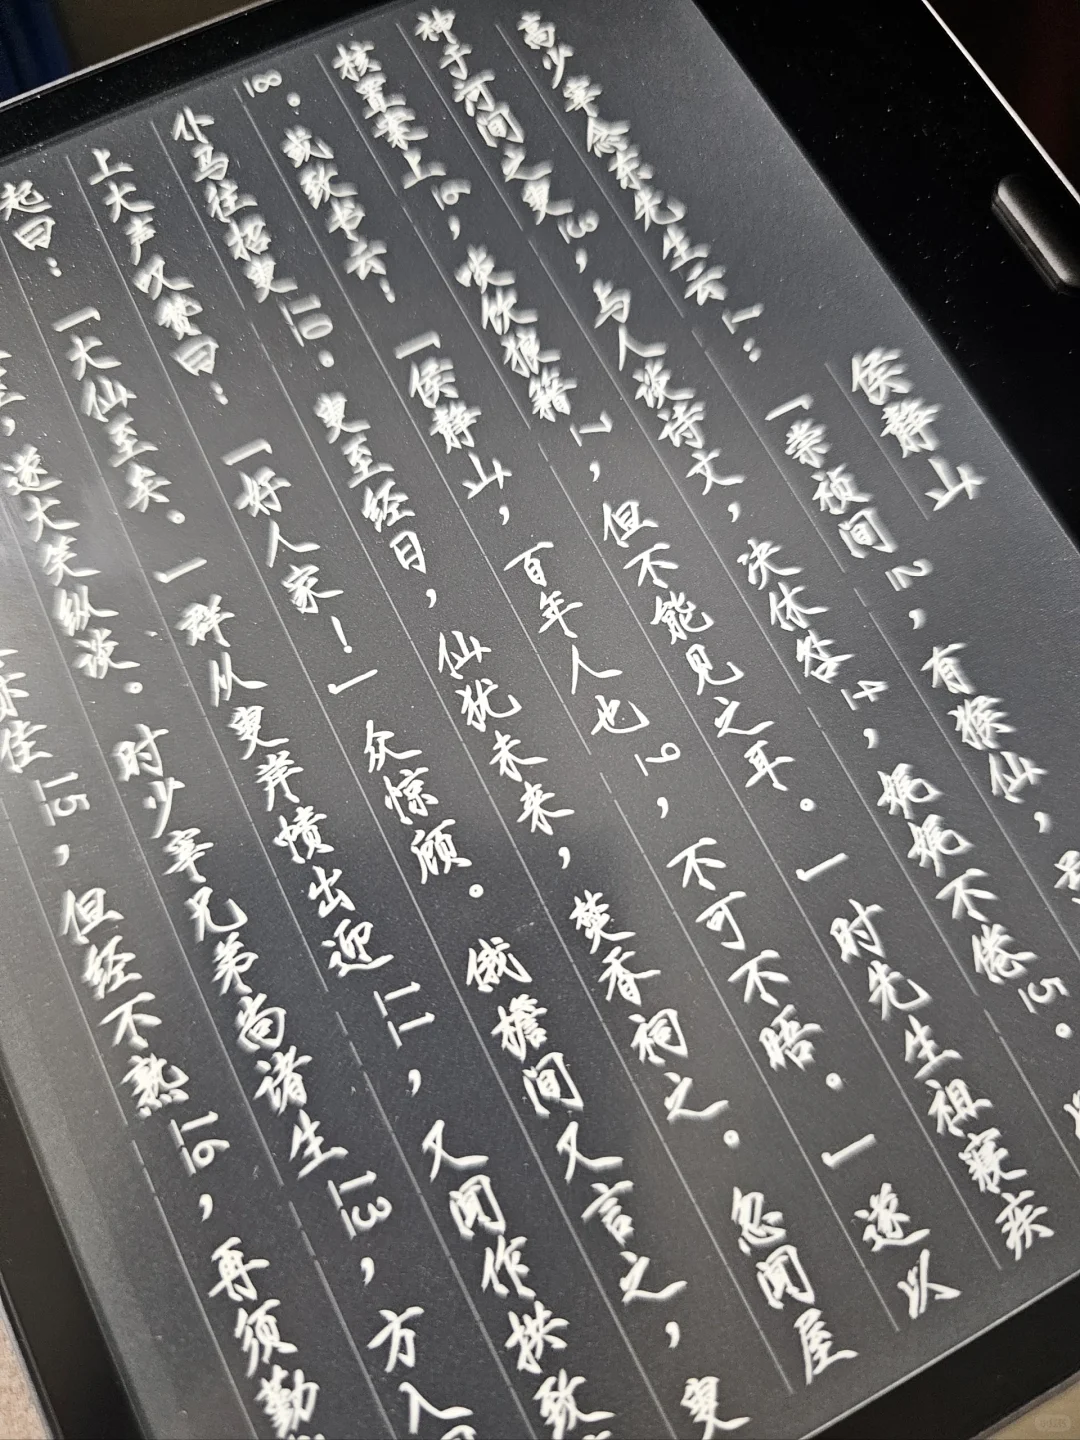 侯静山
高少宰念东先生云1：「崇祯间2，有猴仙，号
神于河间之叟3，与人谈诗文，决休咎4，娓娓不倦5。
核置案上6，啖饮狼籍7，但不能见之耳。」时先生祖寝疾
8。或致书云：「侯静山，百年人也9，不可不晤。」遂以
仆马往招叟10。叟至经日，仙犹未来，焚香祠之。忽闻屋
上大声叹赞曰：「好人家！」众惊顾。俄檐间又言之，叟
起曰：「大仙至矣。」群从叟岸帻出迎11，又闻作拱致
，遂大笑纵谈。时少宰兄弟尚诸生13，方入
亦佳15，但经不熟16，再须勤